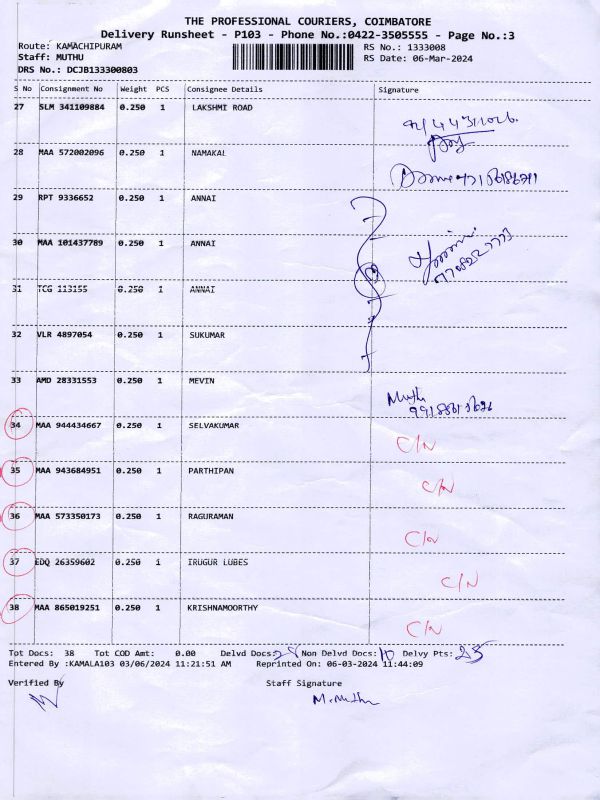 THE PROFESSIONAL COURIERS, COIMBATORE
Delivery Runsheet - P103 - Phone No.:0422-3505555 - Page No.:3
Route: KAMACHIPURAM
RS No.: 1333008
Staff: MUTHU
RS Date: 06-Mar-2024
DRS No.: DCJB133300803
S No Consignment No Weight PCS Consignee Details Signature
27 SLM 341109884 0.250 1 LAKSHMI ROAD
28 MAA 572002096 0.250 1 NAMAKAL
29 RPT 9336652 0.250 1 ANNAI
30 MAA 101437789 0.250 1 ANNAI
31 TCG 113155 0.250 1 ANNAI
32 VLR 4897054 0.250 1 SUKUMAR
33 AMD 28331553 0.250 1 MEVIN
Muthu
34 MAA 944434667 0.250 1 SELVAKUMAR
C/N
35 MAA 943684951 0.250 1 PARTHIPAN
C/N
36 MAA 573350173 0.250 1 RAGURAMAN
C/N
37 EDQ 26359602 0.250 1 IRUGUR LUBES
C/N
38 MAA 865019251 0.250 1 KRISHNAMOORTHY
C/N
Tot Docs: 38 Tot COD Amt: 0.00 Delvd Docs: 28 Non Delvd Docs: 10 Delvy Pts: 25
Entered By :KAMALA103 03/06/2024 11:21:51 AM Reprinted On: 06-03-2024 11:44:09
Verified By Staff Signature
M.Muthu